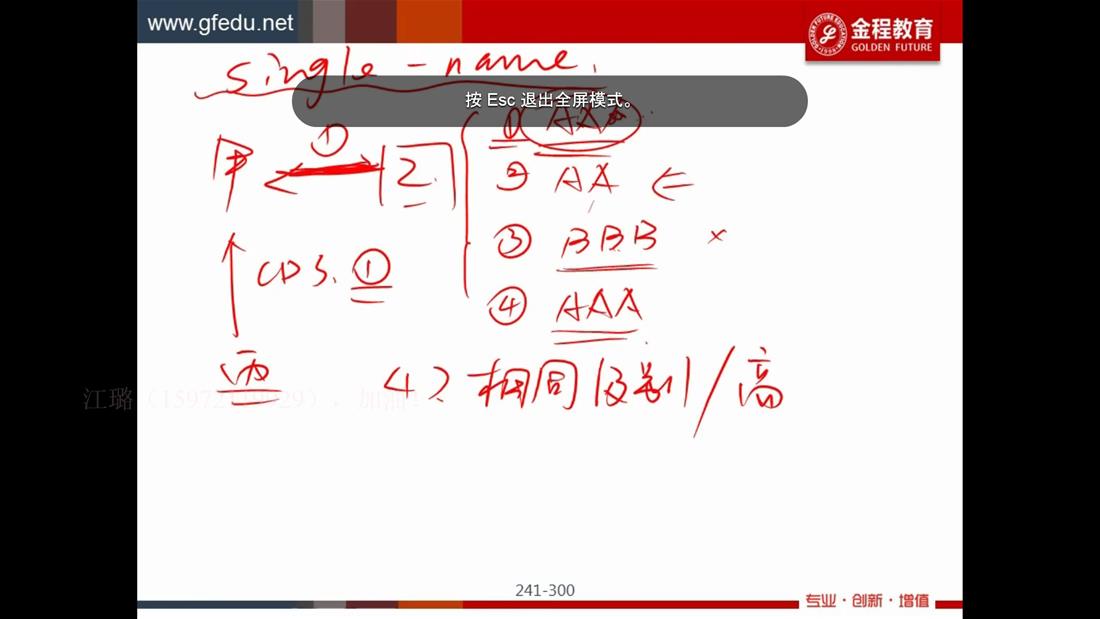 www.gfedu.net
金程教育
GOLDEN FUTURE
single-name.
按 Esc 退出全屏模式。
① AAA
甲 ① 乙
② AA
③ BBB ×
CDS. ①
④ AAA
丙
(4) 相同级别/高
江璐
加油!
241-300
专业·创新·增值